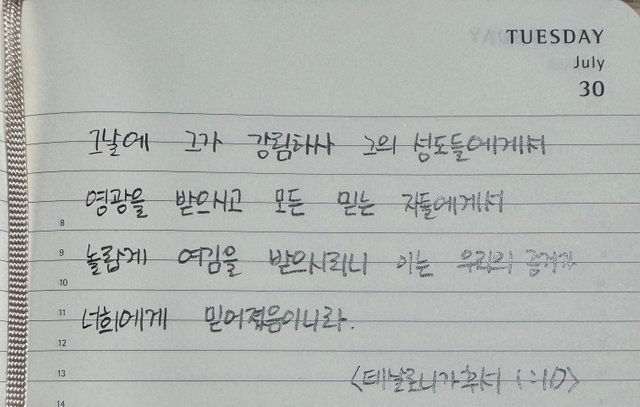 TUESDAY
July
30
그날에 그가 강림하사 그의 성도들에게서
영광을 받으시고 모든 믿는 자들에게서
8
놀랍게 여김을 받으시리니 이는 우리의 증거가
9
10
너희에게 믿어졌음이니라.
11
12
<데살로니가후서 1:10>
13
14